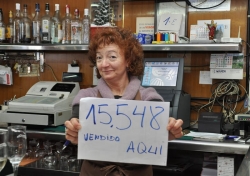 15,548
VENDIDO
AQUÍ